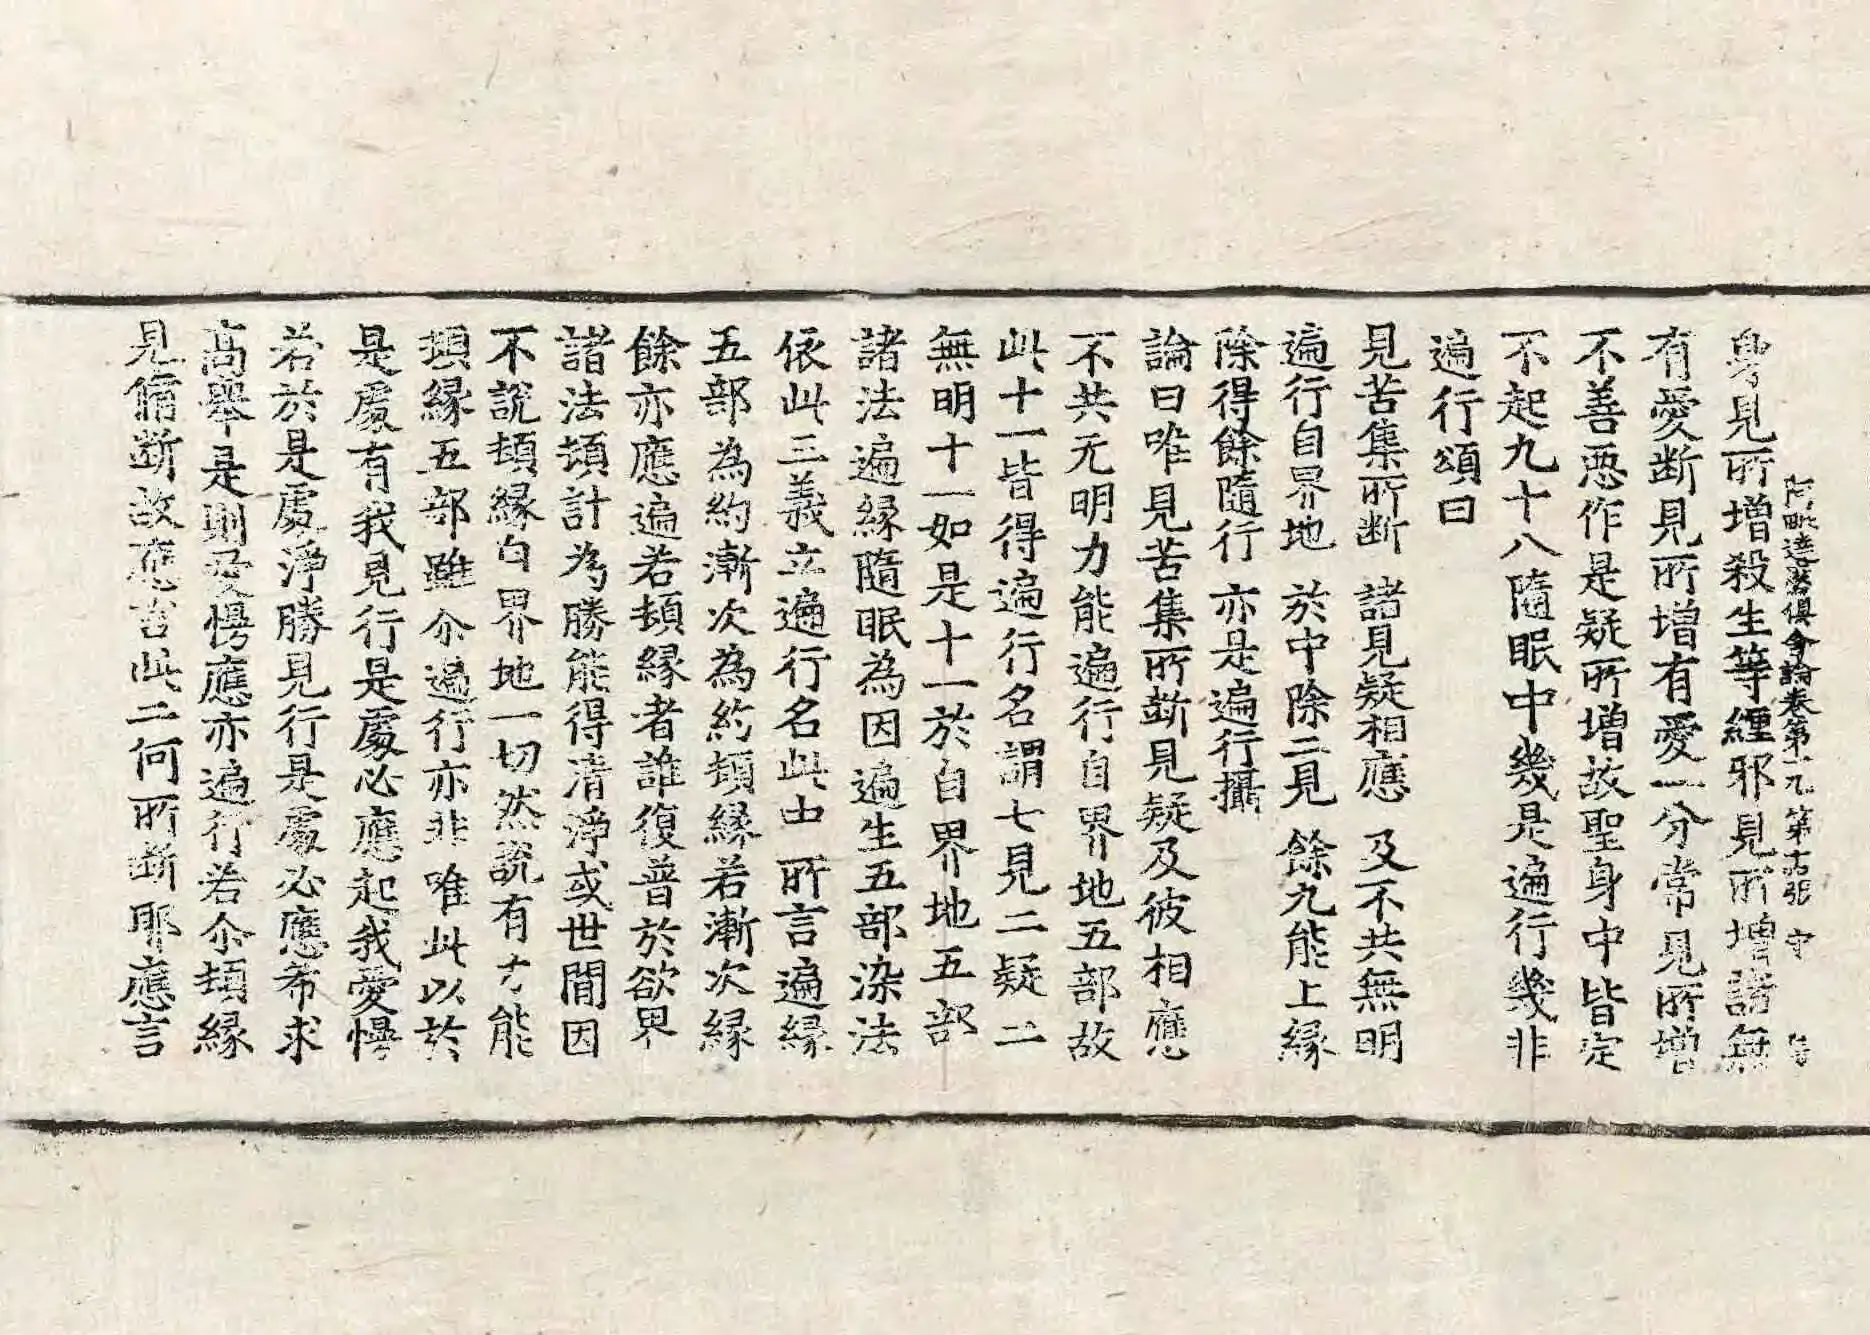 阿毗達磨俱舍論卷第十九 第十六張 守
身見所增殺生等纏邪見所增諸無
有愛斷見所增有愛一分常見所增
不善惡作是疑所增故聖身中皆定
不起九十八隨眠中幾是遍行幾非
遍行頌曰
見苦集所断 諸見疑相應 及不共無明
遍行自界地 於中除二見 餘九能上縁
除得餘隨行 亦是遍行攝
論曰唯見苦集所斷見疑及彼相應
不共无明力能遍行自界地五部故
此十一皆得遍行名謂七見二疑二
無明十一如是十一於自界地五部
諸法遍縁隨眠為因遍生五部染法
依此三義立遍行名此中所言遍縁
五部為約漸次為約頓縁若漸次縁
餘亦應遍若頓縁者誰復普於欲界
諸法頓計為勝能得清淨或世間因
不說頓縁自界地一切然說有力能
頓縁五部雖尒遍行亦非唯此以於
是處有我見行是處必應起我愛慢
若於是處淨勝見行是處必應希求
高舉是則愛慢應亦遍行若尒頓縁
見脩断故應言此二何所断耶應言